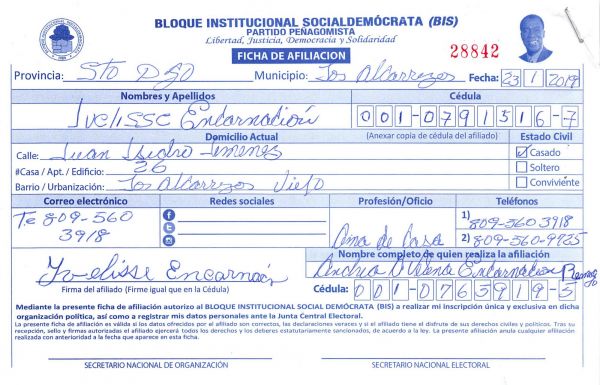 BLOQUE INSTITUCIONAL SOCIALDEMÓCRATA (BIS)
PARTIDO PEÑAGOMISTA
Libertad, Justicia, Democracia y Solidaridad
FICHA DE AFILIACION
28842
Provincia: Sto Dgo Municipio: Los Alcarrizos Fecha: 23/1/2019
Nombres y Apellidos Cédula
Ivelisse Encarnación 001-0791516-7
Domicilio Actual (Anexar copia de cédula del afiliado) Estado Civil
Calle: Juan Isidro Jimenes
Casado
#Casa / Apt. / Edificio: 36
Soltero
Barrio / Urbanización: Los Alcarrizos Viejo
Conviviente
Correo electrónico Redes sociales Profesión/Oficio Teléfonos
Te 809-560
3918
Ama de Casa
1) 809-560 3918
2) 809-560-9925
Nombre completo de quien realiza la afiliación
Ivelisse Encarnación
Encarnacion
Firma del afiliado (Firme igual que en la Cédula)
Cédula: 001-0763919-5
Mediante la presente ficha de afiliación autorizo al BLOQUE INSTITUCIONAL SOCIAL DEMÓCRATA (BIS) a realizar mi inscripción única y exclusiva en dicha
organización política, así como a registrar mis datos personales ante la Junta Central Electoral.
La presente ficha de afiliación es válida si los datos ofrecidos por el afiliado son correctos, las declaraciones veraces y si el afiliado tiene el disfrute de sus derechos civiles y políticos. Tras su
recepción, sello y firmas autorizadas el afiliado ejercerá todos los derechos y los deberes estatutariamente sancionados, de acuerdo a la ley. La presente afiliación anula cualquier afiliación
realizada con anterioridad a la fecha que aparece en esta ficha.
SECRETARIO NACIONAL DE ORGANIZACIÓN SECRETARIO NACIONAL ELECTORAL